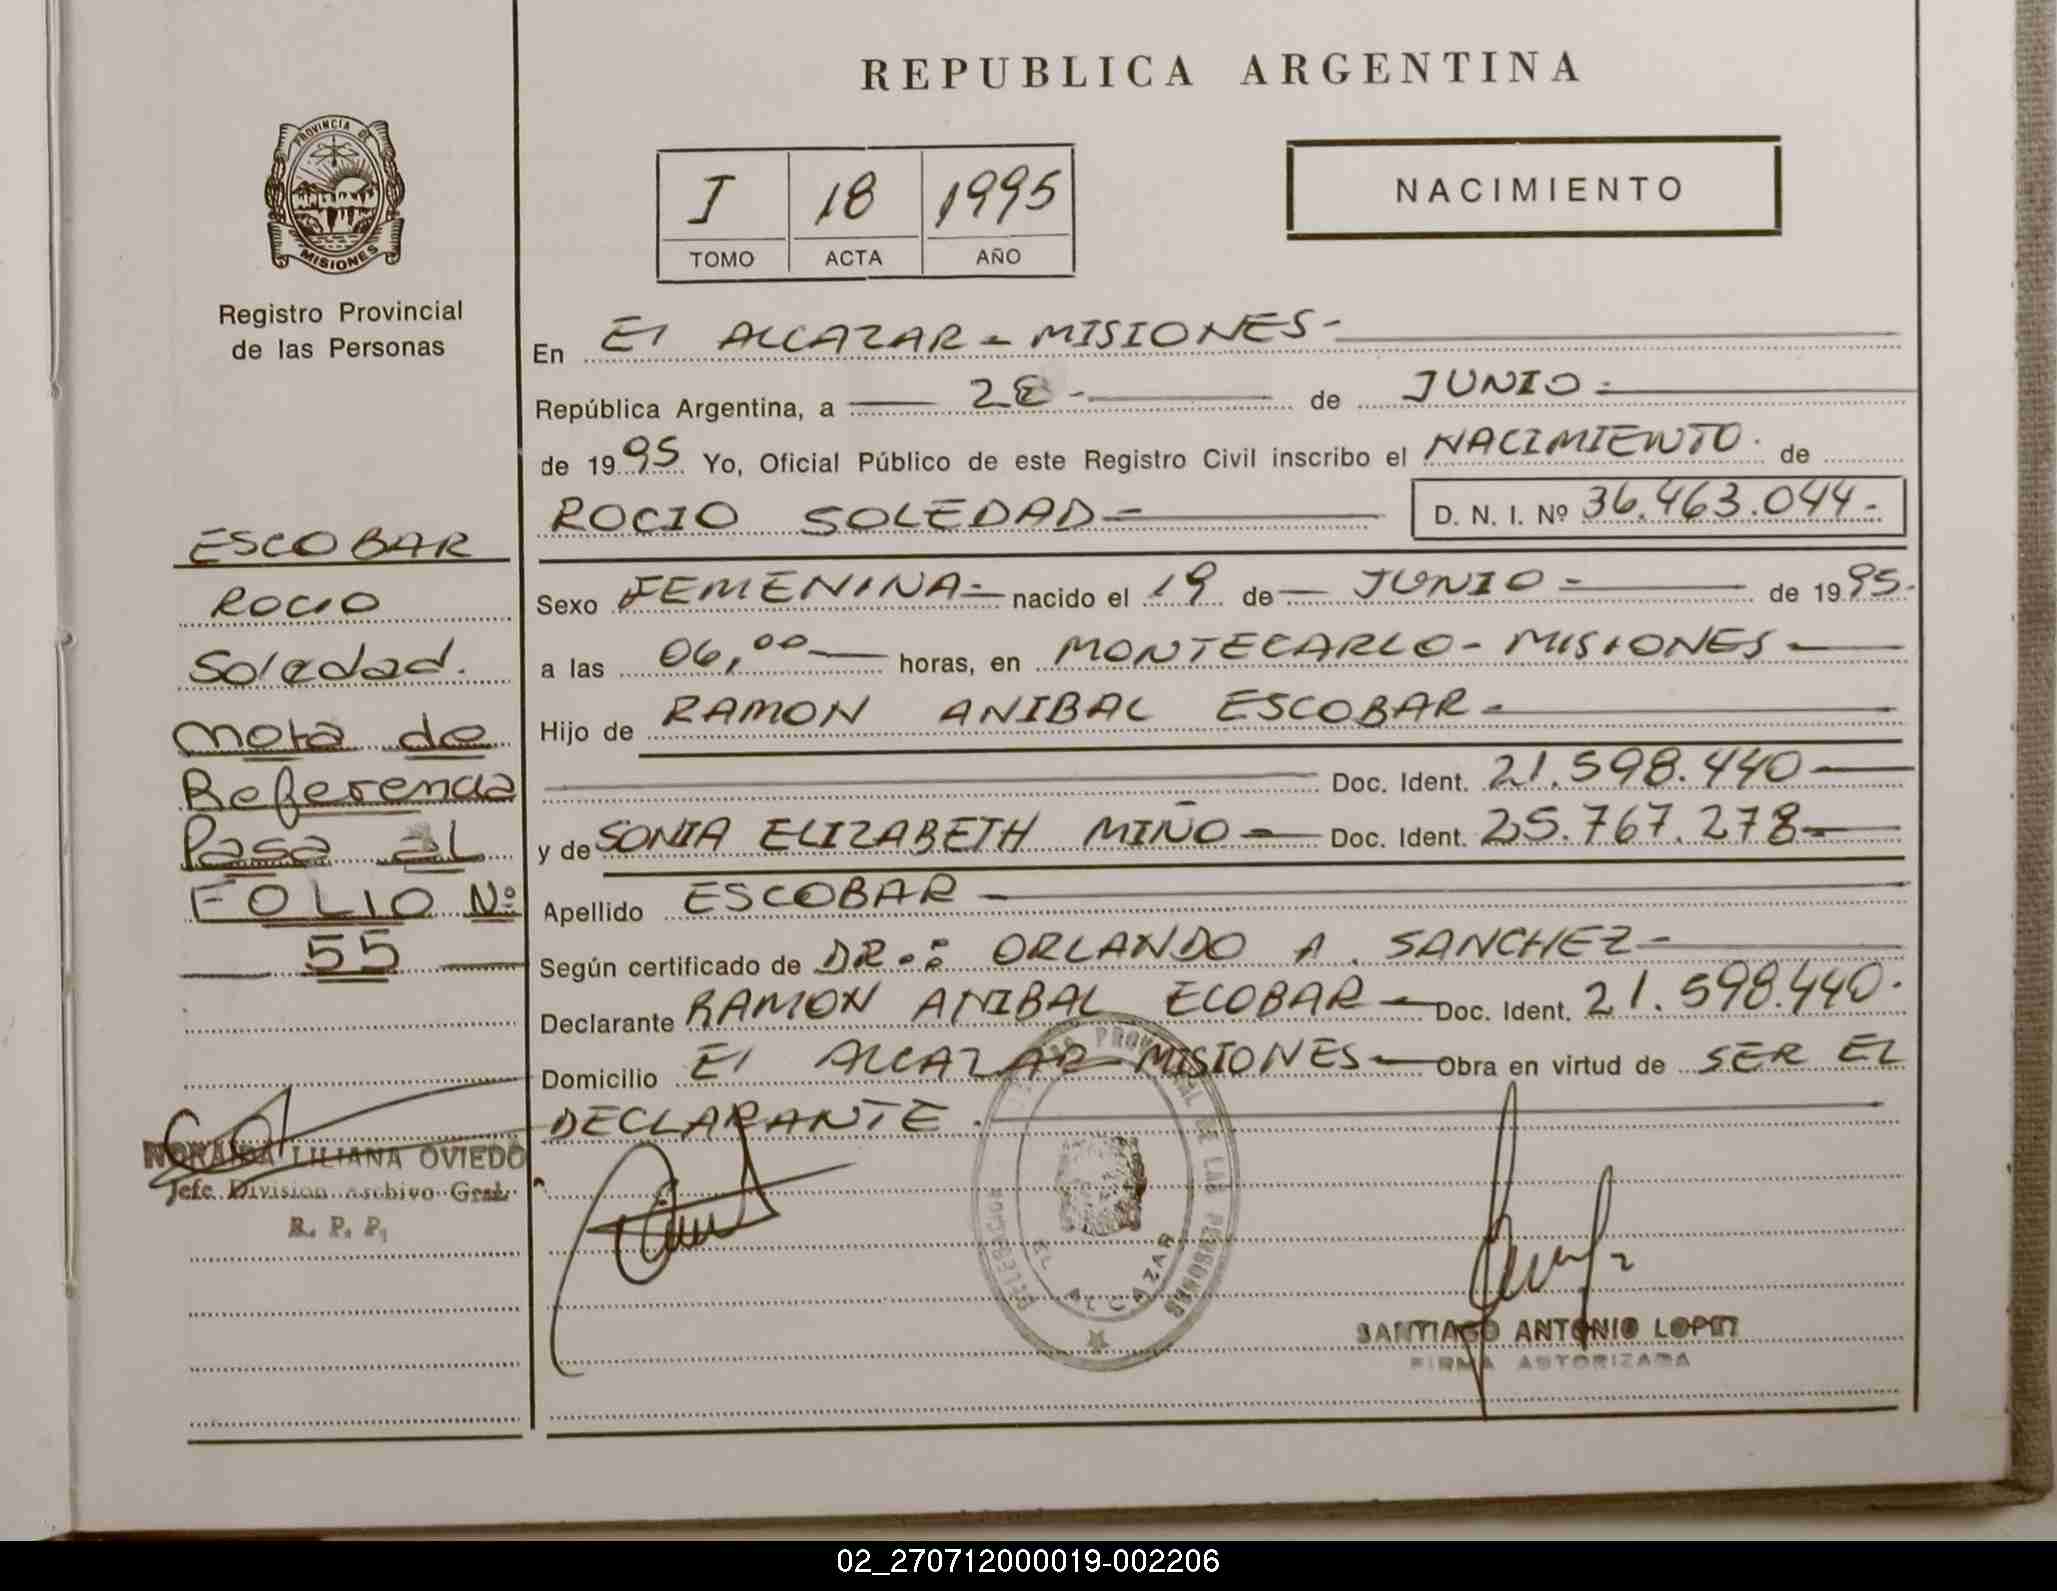 REPUBLICA ARGENTINA
PROVINCIA DE
MISIONES
Registro Provincial
de las Personas
I 18 1995
TOMO ACTA AÑO
NACIMIENTO
En El ALCAZAR - MISIONES -
República Argentina, a 28 - de JUNIO -
de 1995 Yo, Oficial Público de este Registro Civil inscribo el NACIMIENTO. de
ROCIO SOLEDAD - D. N. I. Nº 36.463.044.-
Sexo FEMENINA - nacido el 19 de JUNIO - de 1995.
a las 06,00 horas, en MONTECARLO - MISIONES -
Hijo de RAMON ANIBAL ESCOBAR -
Doc. Ident. 21.598.440 -
y de SONIA ELIZABETH MIÑO - Doc. Ident. 25.767.278 -
Apellido ESCOBAR -
Según certificado de DR.: ORLANDO A. SANCHEZ -
Declarante RAMON ANIBAL ECOBAR - Doc. Ident. 21.598.440.
Domicilio El ALCAZAR - MISIONES - Obra en virtud de SER EL
DECLARANTE.
ESCOBAR
ROCIO
Soledad.
Nota de
Referencia
Pasa al
FOLIO Nº
55
NORAIDA LILIANA OVIEDO
Jefe División Archivo Gral.
R. P. P.
PROVINCIAL DE LAS PERSONAS
DELEGACION
EL ALCAZAR
SANTIAGO ANTONIO LOPEZ
FIRMA AUTORIZADA
02_270712000019-002206